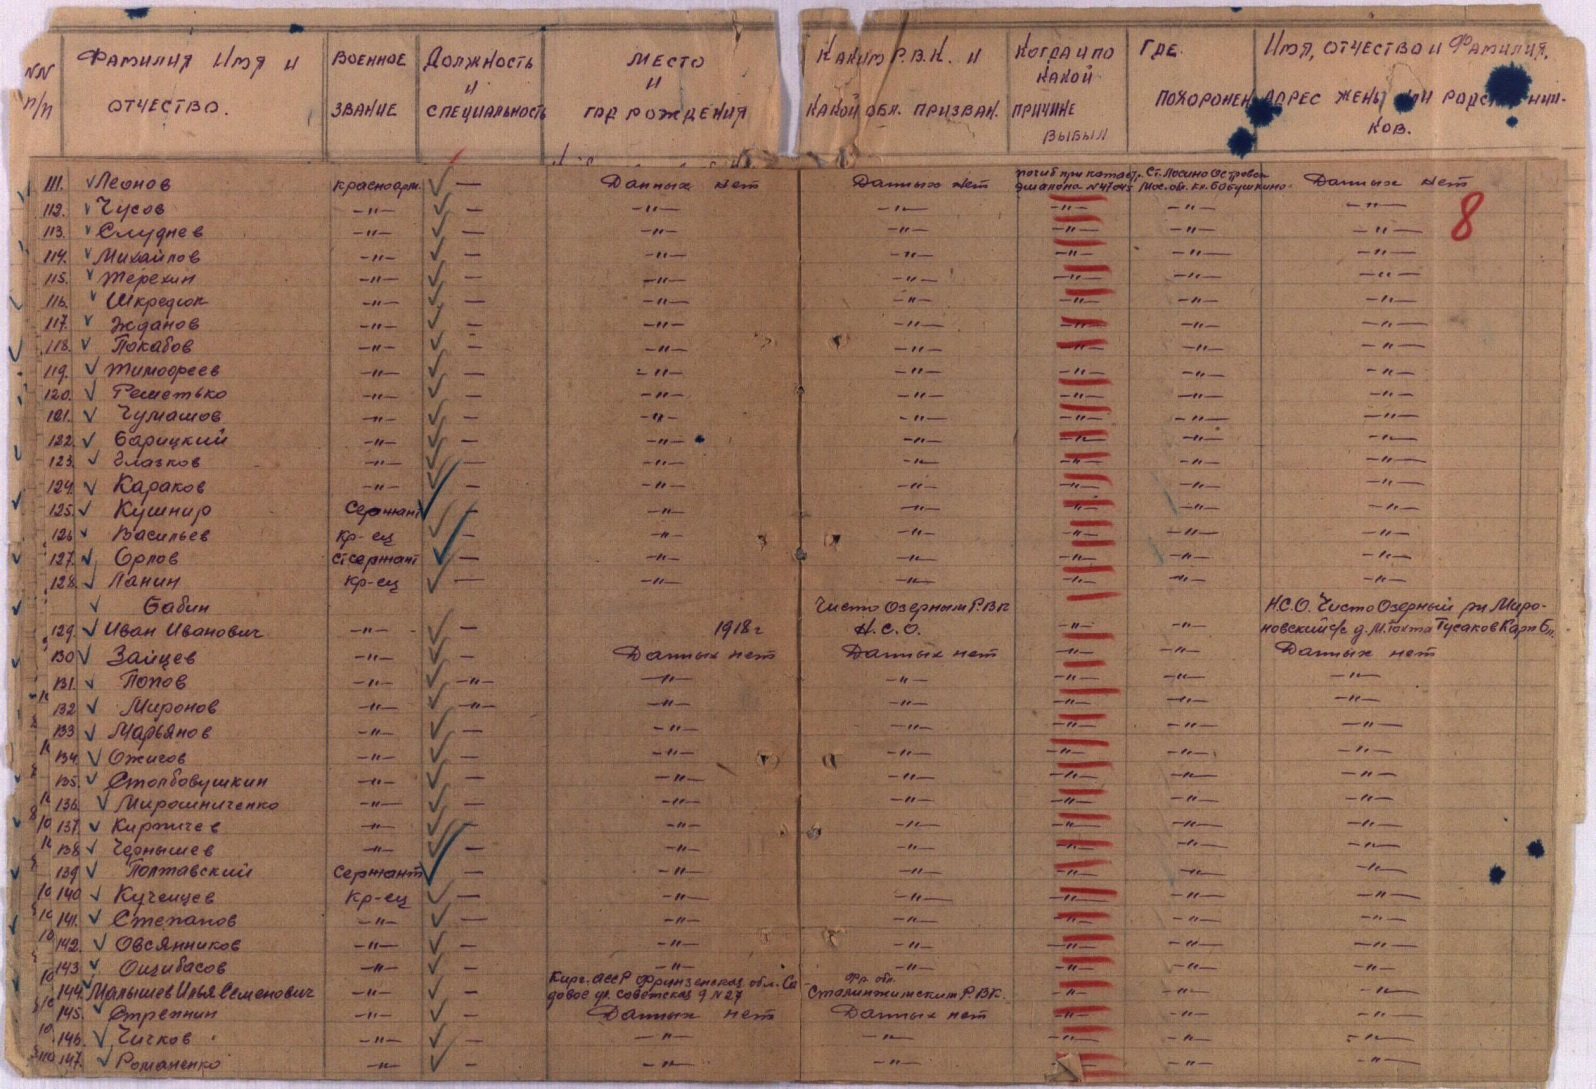 NN п/п Фамилия Имя и отчество. Военное звание Должность и специальность Место и год рождения Каким Р.В.К. и какой обл. призван. Когда и по какой причине выбыл Где похоронен Имя, отчество и фамилия,
адрес жены
ков.
111. Леонов красноарм. — Данных нет Данных нет погиб при катастр. Ст. Лосино Островск Данных нет
эшалона №47045 Мос. об.
112. Чусов —"— — —"— —"— —"— —"— —"— 8
113. Слуднев —"— — —"— —"— —"— —"— —"—
114. Михайлов —"— — —"— —"— —"— —"— —"—
115. Терехин —"— — —"— —"— —"— —"— —"—
116. Шкредюк —"— — —"— —"— —"— —"— —"—
117. Жданов —"— — —"— —"— —"— —"— —"—
118. Покабов —"— — —"— —"— —"— —"— —"—
119. Тимофеев —"— — —"— —"— —"— —"— —"—
120. Решетько —"— — —"— —"— —"— —"— —"—
121. Чумашов —"— — —"— —"— —"— —"— —"—
122. Барицкий —"— — —"— —"— —"— —"— —"—
123. Глазков —"— — —"— —"— —"— —"— —"—
124. Караков —"— — —"— —"— —"— —"— —"—
125. Кушнир Сержант — —"— —"— —"— —"— —"—
126 Васильев Кр-ец — —"— —"— —"— —"— —"—
127. Орлов Ст сержант — —"— —"— —"— —"— —"—
128. Ланин Кр-ец — —"— —"— —"— —"— —"—
Бабин Чисто Озерным Р.В.К Н.С.О. Чисто Озерный рн Миро-
129. Иван Иванович —"— — 1918г Н.С.О. —"— —"— новский с/с д. М. Тохта Гусаков Карп
130 Зайцев —"— — Данных нет Данных нет —"— —"— Данных нет
131. Попов —"— —"— —"— —"— —"— —"— —"—
132 Миронов —"— —"— —"— —"— —"— —"— —"—
133 Марьянов —"— — —"— —"— —"— —"— —"—
134 Ожигов —"— — —"— —"— —"— —"— —"—
135 Столбовушкин —"— — —"— —"— —"— —"— —"—
136. Мирошниченко —"— — —"— —"— —"— —"— —"—
137. Киртичев —"— — —"— —"— —"— —"— —"—
138 Чернышев —"— — —"— —"— —"— —"— —"—
139 Полтавский Сержант — —"— —"— —"— —"— —"—
140 Кученцев Кр-ец — —"— —"— —"— —"— —"—
141. Степанов —"— — —"— —"— —"— —"— —"—
142. Овсянников —"— — —"— —"— —"— —"— —"—
143 Ощибасов —"— — —"— —"— —"— —"— —"—
Кирг. АССР Фрунзенская обл. Са Фр. обл.
144. Малышев Илья Семенович —"— — довое ул. Советская д №27 Сталинским Р.В.К. —"— —"— —"—
145. Стрехнин —"— — Данных нет Данных нет —"— —"— —"—
146. Чичков —"— — —"— —"— —"— —"— —"—
147. Романенко —"— — —"— —"— —"— —"— —"—